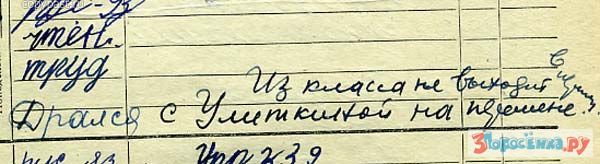 чтен.
труд
Из класса не выходит в
Дрался с Улиткиной на перемене.
рус. яз Упр 239
3Поросёнка.ру